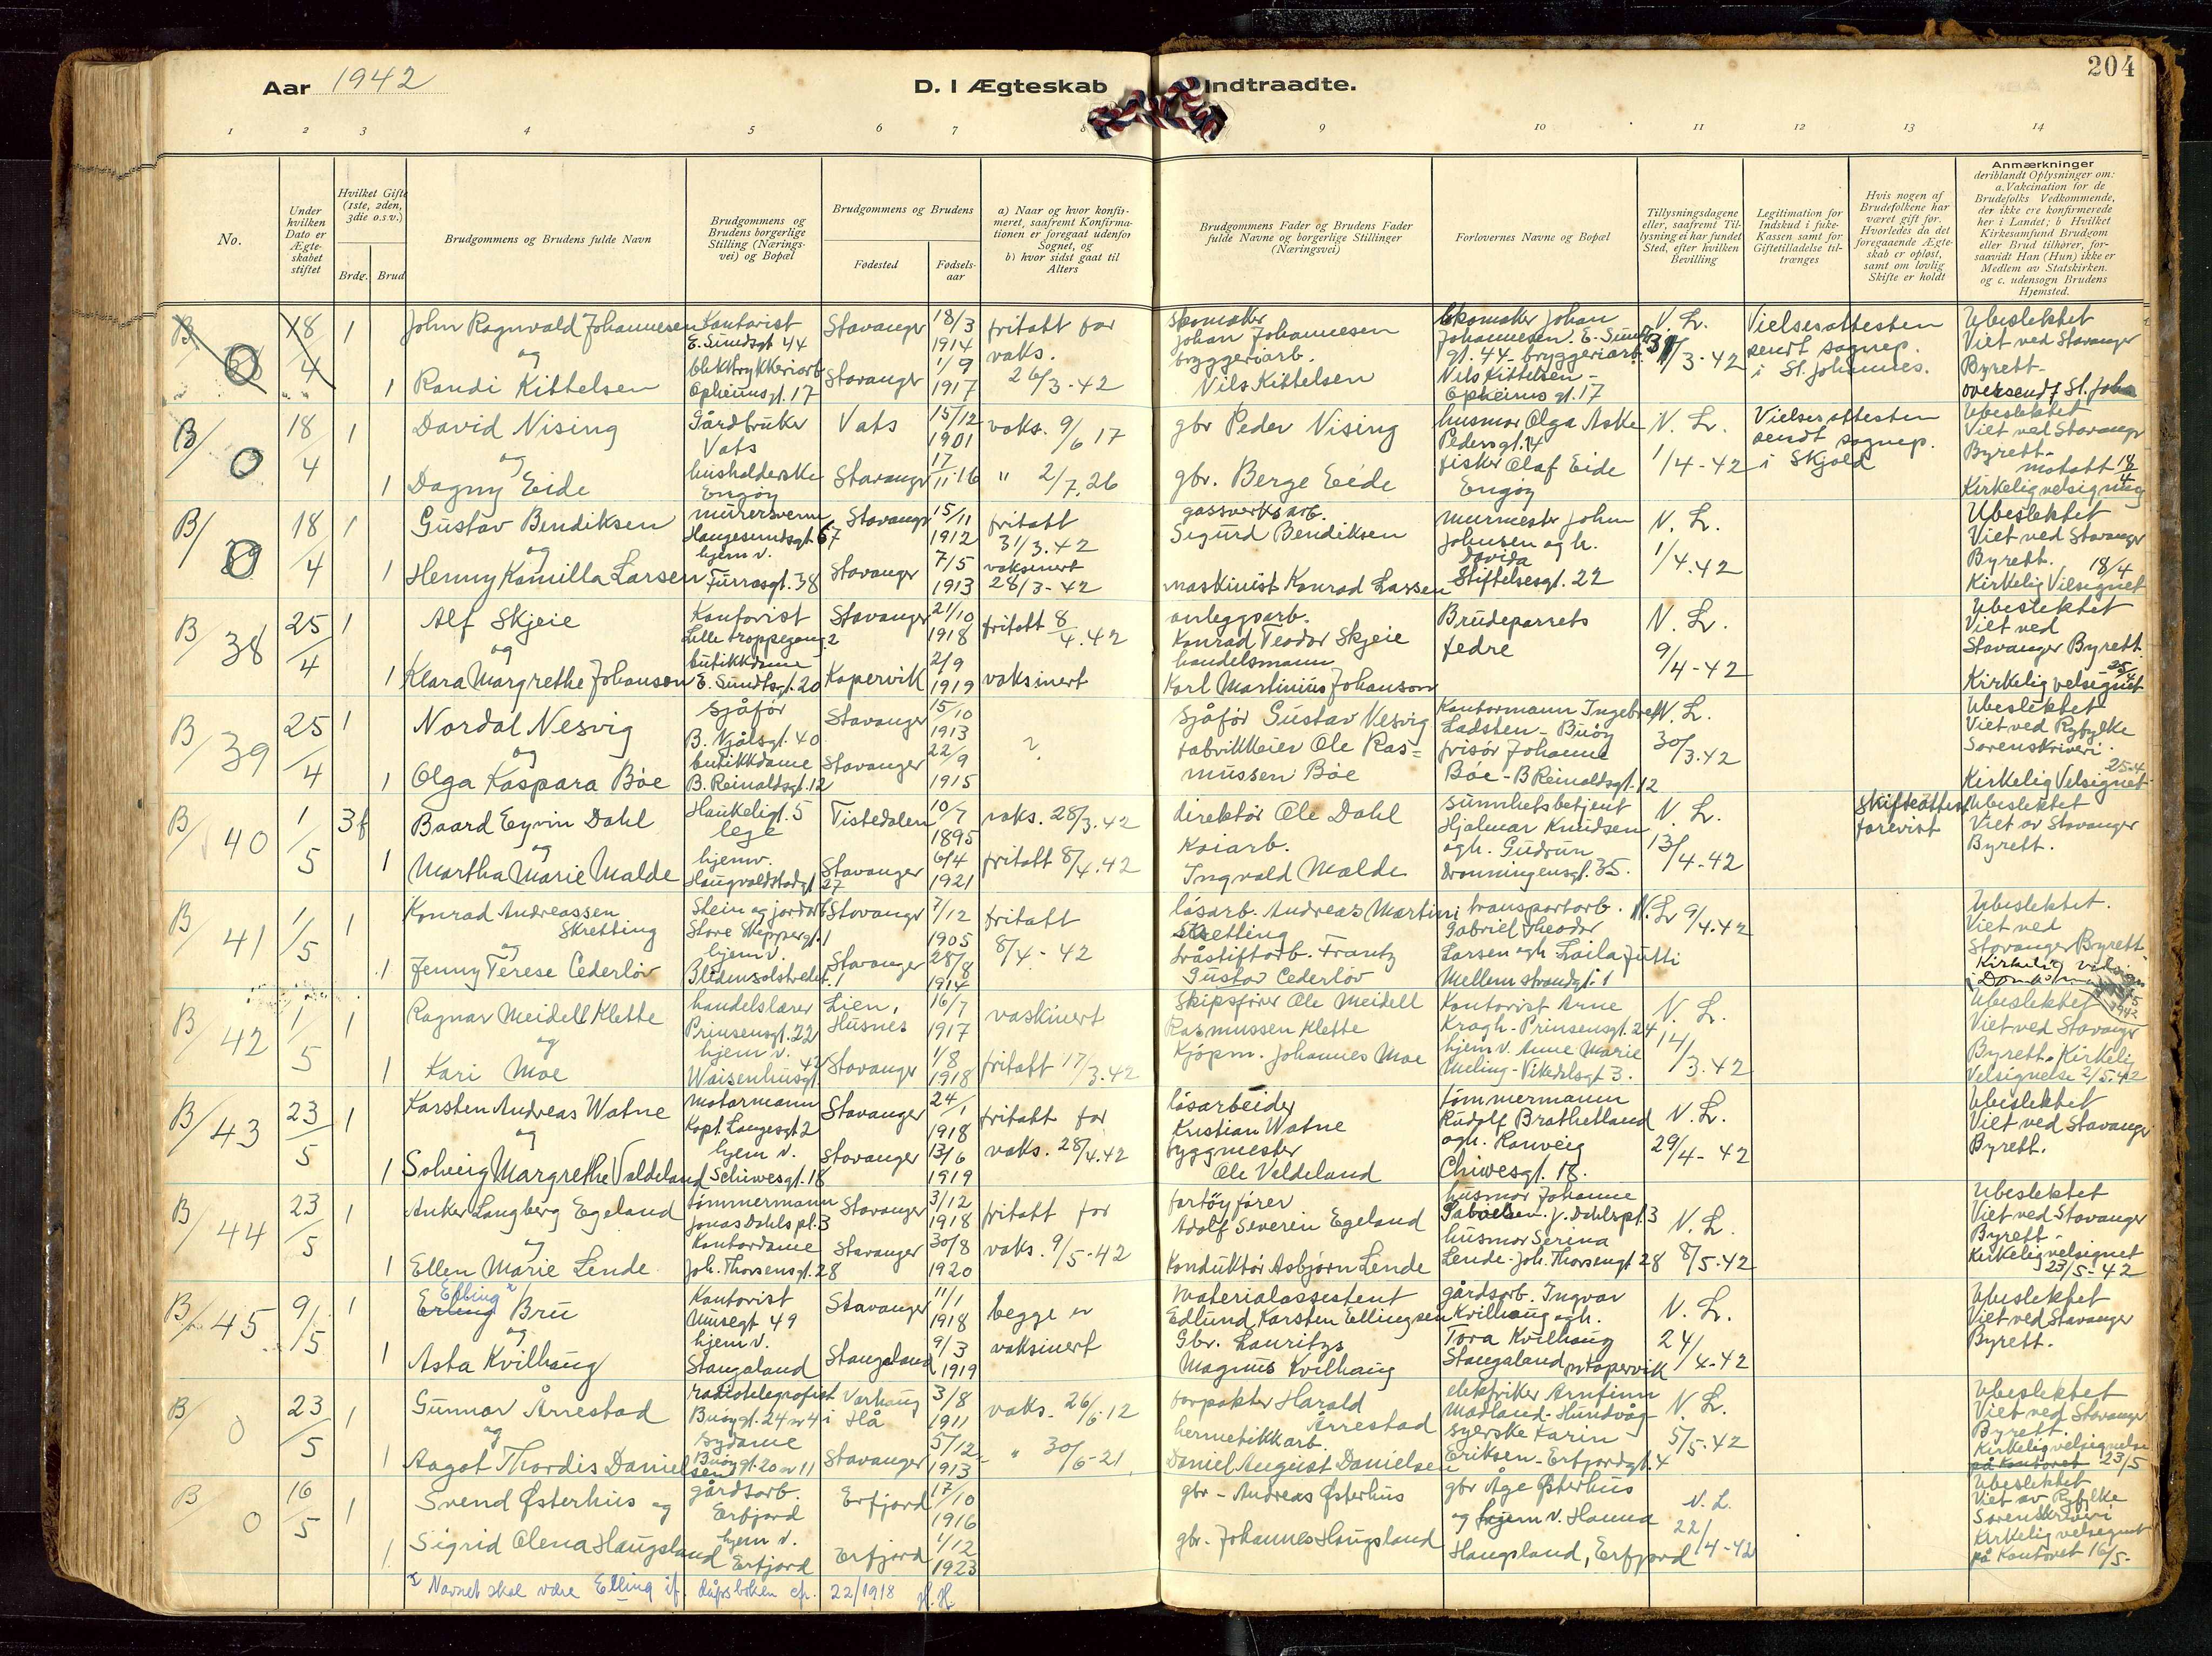 204
Aar 1942
D. I Ægteskab Indtraadte.
1 2 3 4 5 6 7 8 9 10 11 12 13 14
No.
Under hvilken Dato er Ægteskabet stiftet
Hvilket Gifte (1ste, 2den, 3die o.s.v.)
Brdg. Brud
Brudgommens og Brudens fulde Navn
Brudgommens og Brudens borgerlige Stilling (Næringsvei) og Bopæl
Brudgommens og Brudens
Fødested
Fødselsaar
a) Naar og hvor konfirmeret, saafremt Konfirmationen er foregaat udenfor Sognet, og
b) hvor sidst gaat til Alters
Brudgommens Fader og Brudens Fader fulde Navne og borgerlige Stillinger (Næringsvei)
Forlovernes Navne og Bopæl
Tillysningsdagene eller, saafremt Tillysning ei har fundet Sted, efter hvilken Bevilling
Legitimation for Indskud i fuke-Kassen samt for Giftetilladelse tiltrænges
Hvis nogen af Brudefolkene har været gift før. Hvorledes da det foregaaende Ægteskab er opløst, samt om lovlig Skifte er holdt
Anmærkninger
deriblandt Oplysninger om: a. Vakcination for de Brudefolks Vedkommende, der ikke ere konfirmerede her i Landet; b Hvilket Kirkesamfund Brudgom eller Brud tilhører, forsaavidt Han (Hun) ikke er Medlem av Statskirken. og c. udensogn Brudens Hjemsted.
B/0 18/4 1 John Ragnvald Johannesen Kontorist E. Sundtsgt 44 Stavanger 18/3 1914 fritatt for vaks. 26/3-42 skomaker Johan Johannesen Skomaker Johan Johannesen. E. Sundtsgt. 44 - bryggeriarb. N. L. 31/3-42 Vielsesattesten sendt sognep. i St. Johannes. Ubeslektet Viet ved Stavanger Byrett - oversendt St. Joha
og
1 Randi Kittelsen blikktrykkeriarb Opheimsgt. 17 Stavanger 1/9 1917 bryggeriarb. Nils Kittelsen Nils Kittelsen - Opheims gt. 17
B/0 18/4 1 David Nising Gårdbruker Vats Vats 15/12 1901 vaks. 9/6 17 gbr Peder Nising husmor Olga Aske Pedersgt. 14 N. L. 1/4-42 Vielsesattesten sendt sognep. i Skjold Ubeslektet Viet ved Stavanger Byrett - motatt 18/4 Kirkelig velsigning
og
1 Dagny Eide husholderske Engøy Stavanger 17/11-16 " 2/7.26 gbr. Berge Eide fisker Olaf Eide Engøy
B/0 18/4 1 Gustav Bendiksen murersvenn Haugesundsgt 67 Stavanger 15/11 1912 fritatt 31/3.42 gassverksarb. Sigurd Bendiksen murmester John Johnsen og h. Davida Stiftelsesgt. 22 N. L. 1/4.42 Ubeslektet Viet ved Stavanger Byrett. 18/4 Kirkelig Velsignet
og
1 Henny Kamilla Larsen hjem v. Furrasgt. 38 Stavanger 7/5 1913 vaksinert 28/3-42 maskinist Konrad Larsen
B/38 25/4 1 Alf Skjeie Kontorist Lille troppegang 2 Stavanger 21/10 1918 fritatt 8/4.42 anleggsarb. Konrad Teodor Skjeie Brudeparrets fedre N. L. 9/4-42 Ubeslektet Viet ved Stavanger Byrett. 25/4 Kirkelig velsignet
og
1 Klara Margrethe Johanson butikkdame E. Sundtsgt. 20 Kopervik 2/9 1919 vaksinert handelsmann Karl Martinius Johanson
B/39 25/4 1 Nordal Nesvig sjåfør B. Njålsgt. 40 Stavanger 15/10 1913 ? sjåfør Gustav Nesvig Kontormann Ingebret Ladsten - Buøy N. L. 30/3.42 Ubeslektet Viet ved Ryfylke Sorenskriveri. 25.4 Kirkelig Velsignet
og
1 Olga Kaspara Bøe butikkdame B. Reinaldsgt. 12 Stavanger 22/9 1915 fabrikkeier Ole Rasmussen Bøe frisør Johanne Bøe - B Reinaldsgt. 12
B/40 1/5 3f Baard Eyvin Dahl Haukeligt. 5 lege Tistedalen 10/7 1895 vaks. 28/3.42 direktør Ole Dahl sunnhetsbetjent Hjalmar Knudsen ogh. Gudrun Dronningensgt. 35. N. L. 13/4-42 Skifteattest forevist Ubeslektet Viet av Stavanger Byrett.
og
1 Martha Marie Malde hjemv. Haugvaldstadgt 27 Stavanger 6/4 1921 fritatt 8/4.42 Kaiarb. Ingvald Malde
B/41 1/5 1 Konrad Andreassen Skretting Stein og jordarb Store Skippergt. 1 Stavanger 7/12 1905 fritatt 8/4-42 løsarb. Andreas Martini Skretting transportarb. Gabriel Theodor Larsen ogh Laila Jutti Mellem strandgt. 1 N. L. 9/4.42 Ubeslektet. Viet ved Stavanger Byrett. Kirkelig
og
1 Jenny Terese Cederløv hjem v. Bledensolstredet. 1 Stavanger 28/8 1914 tråstiftarb. Frantz Gustav Cederløv
B/42 1/5 1 Ragnar Meidell Klette handelslærer Prinsensgt. 22 Lien, Husnes 16/7 1917 vaskinert Skipsfører Ole Meidell Rasmussen Klette Kontorist Arne Kragh - Prinsensgt. 24 N. L. 14/3.42 Ubeslektet Viet ved Stavanger Byrett. Kirkelig Velsignelse 2/5.42
og
1 Kari Moe hjem v. Waisenhusgt 42 Stavanger 1/8 1918 fritatt 17/3.42 Kjøpm. Johannes Moe hjem v. Anne Marie Meling - Vikedalsgt 3.
B/43 23/5 1 Karsten Andreas Watne motormann Kapt. Langesgt 2 Stavanger 24/1 1918 fritatt for vaks. 28/4.42 løsarbeider Kristian Watne tømmermann Rudolf Brathetland ogh. Ranveig Chiwesgt. 18. N. L. 29/4-42 Ubeslektet Viet ved Stavanger Byrett.
og
1 Solveig Margrethe Valdeland hjem v. Schiwesgt. 18 Stavanger 13/6 1919 byggmester Ole Veldeland
B/44 23/5 1 Anker Langberg Egeland tømmermann Jonas Dahls pl. 3 Stavanger 3/12 1918 fritatt for vaks. 9/5-42 fartøyfører Adolf Severin Egeland husmor Johanne J. Dahlspl. 3 N. L. 8/5-42 Ubeslektet Viet ved Stavanger Byrett - Kirkelig velsignet 23/5-42
og
1 Ellen Marie Lende Kontordame Joh. Thorsensgt. 28 Stavanger 30/8 1920 Konduktør Asbjørn Lende husmor Serina Lende - Joh. Thorsengt 28
B/45 9/5 1 Erling Elling Bru Kontorist Musegt 49 Stavanger 11/1 1918 begge er vaksinert Materialassistent Edlund Karsten Ellingsen gårdsarb. Ingvar Kvilhaug ogh. Tora Kvilhaug Stangaland pr Kopervik N. L. 24/4-42 Ubeslektet Viet ved Stavanger Byrett.
og
1 Asta Kvilhaug hjem v. Stangaland Stangaland 9/3 1919 Gbr. Lauritzs Magnus Kvilhaug
B/0 23/5 1 Gunnar Årrestad radiotelegrafist Buøygt. 24 nr 4 Varhaug i Hå 3/8 1911 vaks. 26/6-12 forpakter Harald Årrestad elektriker Arnfinn Madland - Hundvåg N. L. 5/5-42 Ubeslektet Viet ved Stavanger Byrett. Kirkelig velsignelse på kontoret 23/5
og
1 Aagot Thordis Danielsen sydame Buøygt. 20 nr 11 Stavanger 5/12 1913 " 30/6-21 hermetikkarb. Daniel August Danielsen syerske Karin Eriksen - Erfjordgt. 4
B/0 16/5 1 Svend Østerhus og gårdsarb. Erfjord Erfjord 17/10 1916 gbr - Andreas Østerhus gbr Åge Østerhus og hjem v. Hanna Haugsland, Erfjord N. L. 22/4-42 Ubeslektet Viet av Ryfylke Sorenskriveri Kirkelig velsignet på kontoret 16/5-
1 Sigrid Olena Haugsland hjem v. Erfjord Erfjord 4/12 1923 gbr. Johannes Haugsland
Navnet skal være Elling if. dåpsboken cfr. 22/1918 H.H.